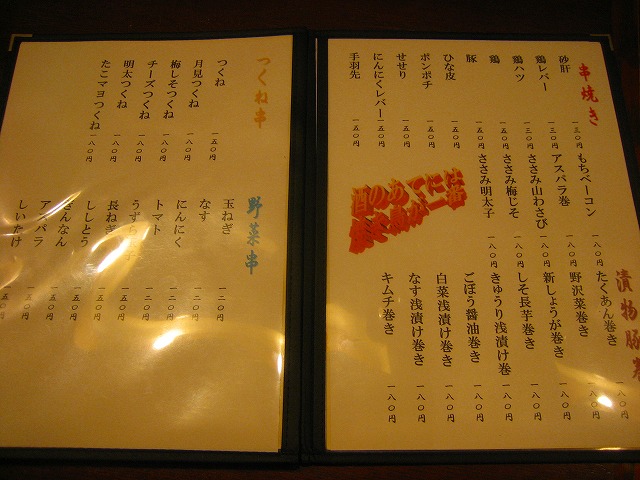 串焼き
砂肝 一三〇円
鶏レバー 一三〇円
鶏ハツ 一三〇円
鶏 一五〇円
豚 一五〇円
ひな皮 一五〇円
ボンボチ 一五〇円
せせり 一五〇円
にんにくレバー 一五〇円
手羽先 一五〇円
もちベーコン 一八〇円
アスパラ巻 一八〇円
ささみ山わさび 一八〇円
ささみ梅じそ 一八〇円
ささみ明太子 一八〇円
酒のあてには
一番
漬物豚巻
たくあん巻き 一八〇円
野沢菜巻き 一八〇円
新しょうが巻き 一八〇円
しそ長芋巻き 一八〇円
きゅうり浅漬け巻き 一八〇円
ごぼう醤油巻き 一八〇円
白菜浅漬け巻き 一八〇円
なす浅漬け巻き 一八〇円
キムチ巻き 一八〇円
つくね串
つくね 一八〇円
月見つくね 一八〇円
梅しそつくね 一八〇円
チーズつくね 一八〇円
明太つくね 一八〇円
たこマヨつくね 一八〇円
野菜串
玉ねぎ 一二〇円
なす 一二〇円
にんにく 一二〇円
トマト 一二〇円
うずら 一五〇円
長ねぎ 一五〇円
ししとう 一五〇円
ぎんなん 一五〇円
アスパラ 一五〇円
しいたけ 五〇円